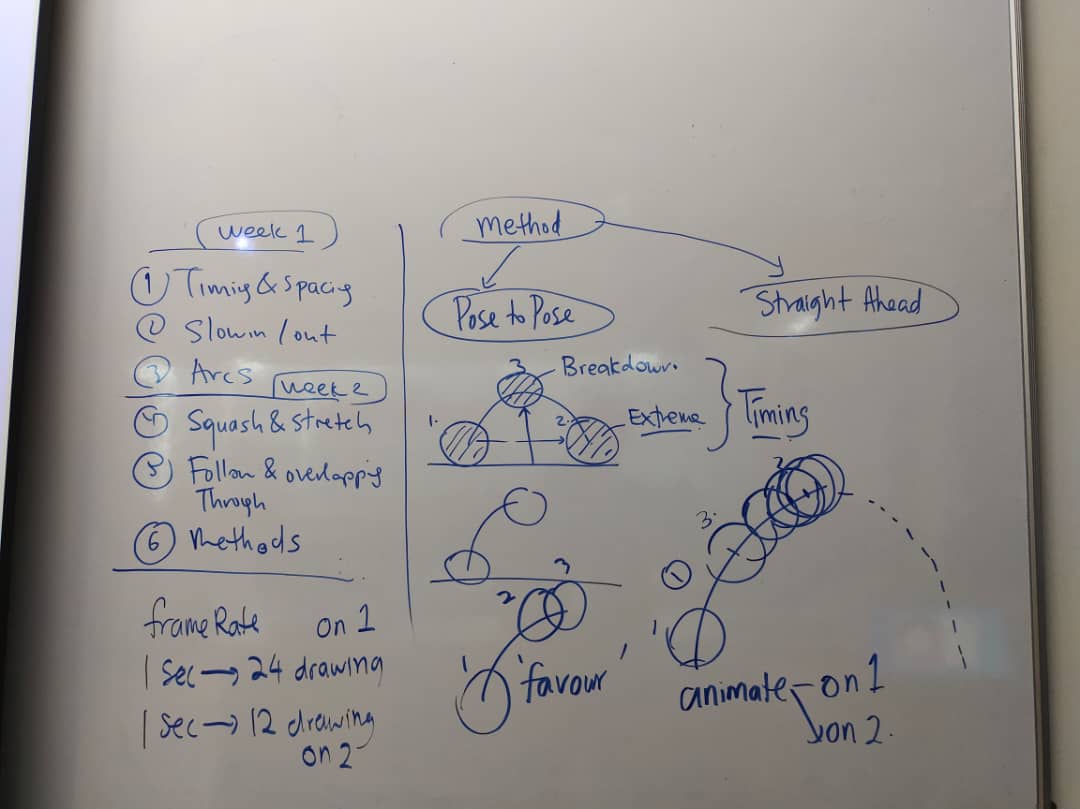 Week 1
1 Timing & Spacing
2 Slowin / out
3 Arcs
Week 2
4 Squash & stretch
5 Follow & overlapping
Through
6 methods
frameRate on 1
1 Sec → 24 drawing
1 Sec → 12 drawing
on 2
method
Pose to Pose
Straight Ahead
3 Breakdown.
1. 2. Extreme
Timing
3
2
1
'favour'
2
3.
1
1
animate - on 1
on 2.